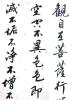 觀自在菩薩行
空空不異色色即
滅不垢不淨不增不